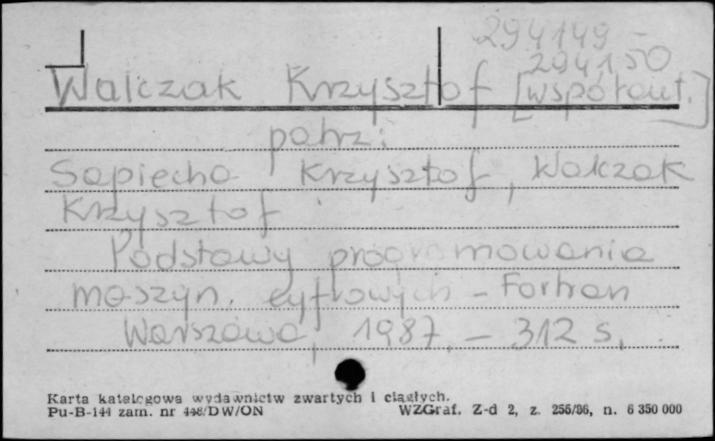 294149 -
294150
Walczak Krzysztof [współaut.]
patrz:
Sapiecha Krzysztof, Walczak
Krzysztof
Podstawy programowania
maszyn. cyfrowych - Fortran
Warszawa, 1987. - 312 s.
Karta katalogowa wydawnictw zwartych i ciągłych.
Pu-B-144 zam. nr 448/DW/ON WZGraf. Z-d 2, z. 256/86, n. 6 350 000